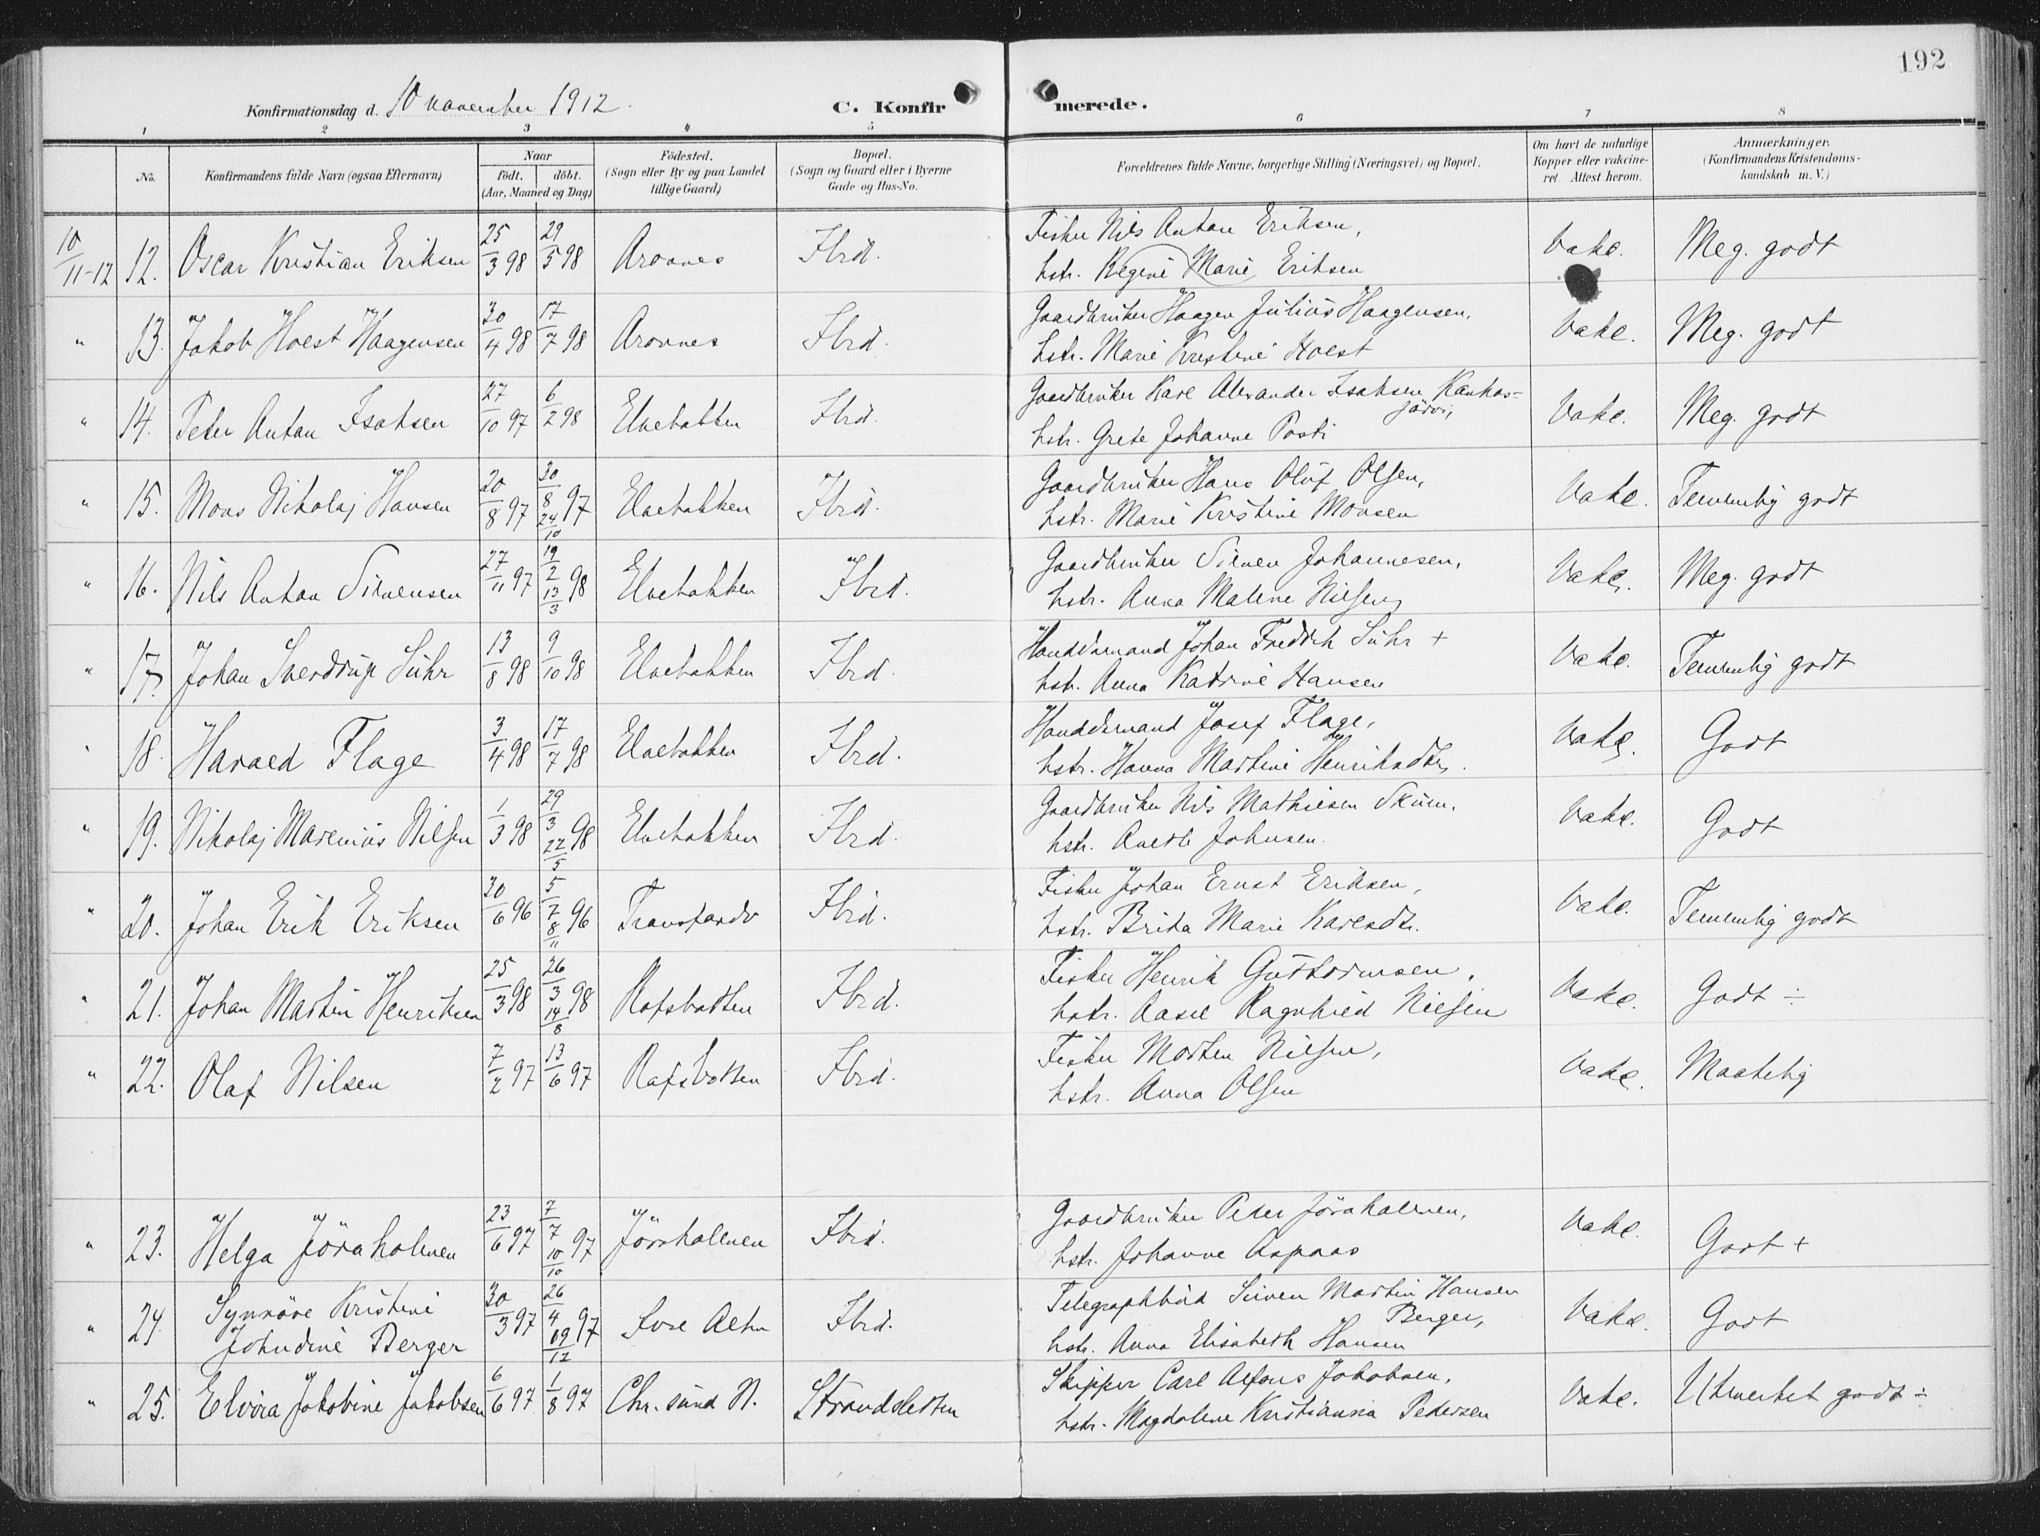 192
Konfirmationsdag d. 10 november 1912.
C. Konfirmerede.
1 2 3 4 5 6 7 8
No.
Konfirmandens fulde Navn (ogsaa Efternavn)
Naar
født. døbt.
(Aar, Maaned og Dag)
Fødested.
(Sogn eller By og paa Landet
tillige Gaard)
Bopæl.
(Sogn og Gaard eller i Byerne
Gade og Hus-No.
Forældrenes fulde Navne, borgerlige Stilling (Næringsvei) og Bopæl.
Om havt de naturlige
Kopper eller vakcine-
ret. Attest herom.
Anmærkninger.
(Konfirmandens Kristendoms-
kundskab m. V.)
10/11-12 12. Oscar Kristian Eriksen 25/3 98 29/5 98 Aronnes Ibid. Fisker Nils Anton Eriksen, Vakc. Meg. godt
hstr. Regine Marie Eriksen
" 13. Jakob Hoest Haagensen 30/4 98 17/7 98 Aronnes Ibid. Gaardbruker Haagen Julius Haagensen, Vakc. Meg. godt
hstr. Marie Kristine Hoest
" 14. Peter Anton Isaksen 27/10 97 6/2 98 Elvebakken Ibid. Gaardbruker Karl Alexander Isaksen Kankas-
järvi, Vakc. Meg. godt
hstr. Grete Johanne Posti
" 15. Mons Nikolaj Hansen 20/8 97 30/8 24/10 97 Elvebakken Ibid. Gaardbruker Hans Oluf Olsen, Vakc. Temmelig godt
hstr. Marie Kristine Monsen
" 16. Nils Anton Sivensen 27/11 97 19/2 13/3 98 Elvebakken Ibid. Gaardbruker Siven Johannesen, Vakc. Meg. godt
hstr. Anna Malene Nilsen
" 17. Johan Sverdrup Suhr 13/8 98 9/10 98 Elvebakken Ibid. Handelsmand Johan Fredrik Suhr + Vakc. Temmelig godt
hstr. Anna Katrine Hansen
" 18. Harald Flage 3/4 98 17/7 98 Elvebakken Ibid. Handelsmand Josef Flage, Vakc. Godt
hstr. Hanna Martine Henriksdtr.
" 19. Nikolaj Marenius Nilsen 1/3 98 29/3 22/5 98 Elvebakken Ibid. Gaardbruker Nils Mathiesen Skum, Vakc. Godt
hstr. Anethe Johnsen.
" 20. Johan Erik Eriksen 30/6 96 5/7 8/11 96 Transfarelv Ibid. Fisker Johan Ernst Eriksen, Vakc. Temmelig godt
hstr. Brita Marie Karlsdtr.
" 21. Johan Martin Henriksen 25/3 98 26/3 14/8 98 Rafsbotten Ibid. Fisker Henrik Guttormsen, Vakc. Godt ÷
hstr. Aasel Ragnhild Nielsen
" 22. Olaf Nilsen 7/2 97 13/6 97 Rafsbotten Ibid. Fisker Morten Nilsen, Vakc. Maatelig
hstr. Anna Olsen
" 23. Helga Jöraholmen 23/6 97 7/7 10/10 97 Jöraholmen Ibid. Gaardbruker Peter Jöraholmen, Vakc. Godt +
hstr. Johanne Aspaas
" 24. Synnöve Kristine
Johndine Berger 30/3 97 26/4 19/12 97 Ibid. Telegraphbud Siven Martin Hansen
Berger, Vakc. Godt
hstr. Anna Elisabeth Hansen
" 25. Elvira Jakobine Jakobsen 6/6 97 1/8 97 Chr. sund N. Strandsletten Skipper Carl Alfons Jakobsen, Vakc. Utmerket godt ÷
hstr. Magdalene Kristianna Pedersen